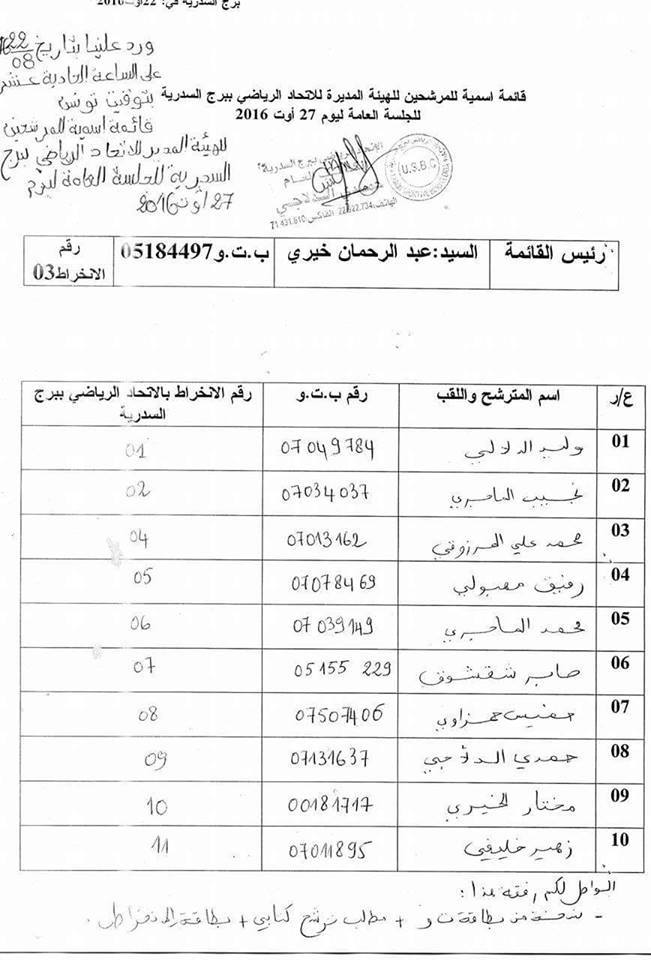 برج السدرية في: 22 أوت 2016
ورد علينا بتاريخ 22/08
على الساعة الحادية عشر
بتوقيت تونس
قائمة اسمية للمرشحين
للهيئة المديرة للاتحاد الرياضي ببرج
السدرية للجلسة العامة ليوم
27 أوت 2016
قائمة اسمية للمرشحين للهيئة المديرة للاتحاد الرياضي ببرج السدرية
للجلسة العامة ليوم 27 أوت 2016
الاتحاد الرياضي ببرج السدرية
U.S.B.C
الهاتف: 22.922.734 الفاكس: 71.431.610
رئيس القائمة السيد:عبد الرحمان خيري ب.ت.و05184497 رقم الانخراط03
ع/ر اسم المترشح واللقب رقم ب.ت.و رقم الانخراط بالاتحاد الرياضي ببرج السدرية
01 وليد الدلالي 07049784 01
02 نجيب الناصري 07034037 02
03 محمد علي المرزوقي 07013162 04
04 رفيق مقبولي 07078469 05
05 محمد الناصري 07039149 06
06 صابر شقشوق 05155 229 07
07 خميس حمزاوي 07507406 08
08 حمدي الدلاجي 07131637 09
09 مختار الخيري 00181717 10
10 زهير خليفي 07011895 11
لكم رفقة هذا:
- نسخة من بطاقة ت و + مطلب ترشح كتابي + بطاقة الانخراط.